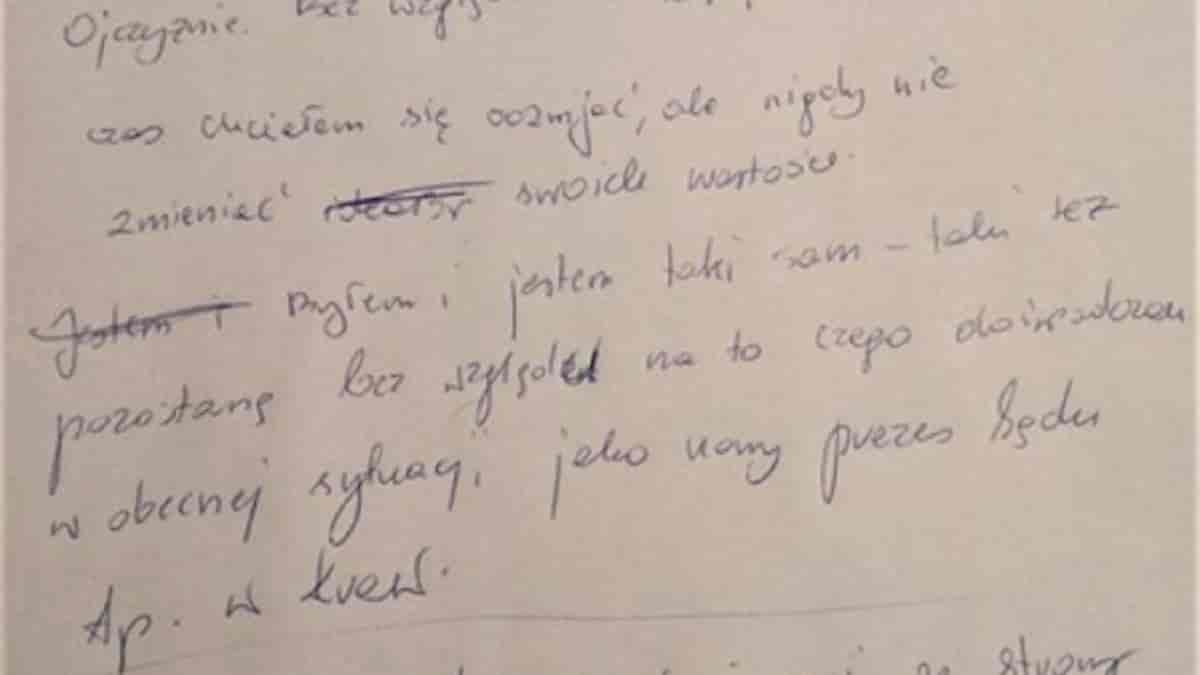 Ojczyźnie. Bez
czas chciałem się rozwijać, ale nigdy nie
zmieniać swoich wartości.
Jestem i Byłem i jestem taki sam – taki też
pozostanę bez względu na to czego doświadczam
w obecnej sytuacji jako nowy prezes Sądu
Ap. w Krak.
strony